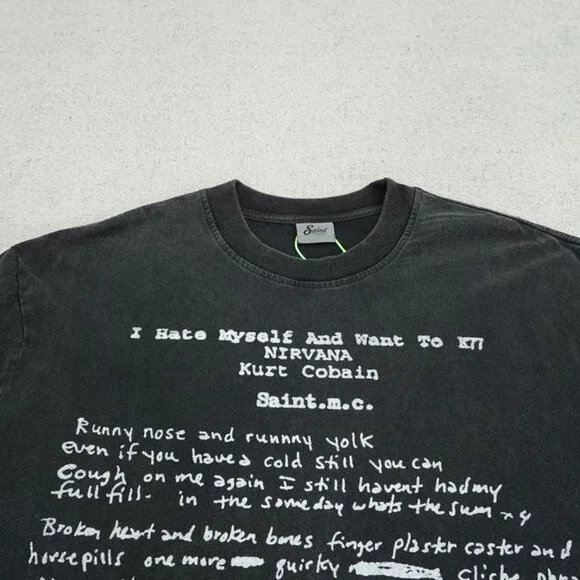 Saint
I Hate Myself And Want To K
NIRVANA
Kurt Cobain
Saint.m.c.
Runny nose and runnny yolk
even if you have a cold still you can
Cough on me again I still havent had my
full fill- in the someday whats the sum
Broken heart and broken bones finger plaster caster and
horse pills one more quirky